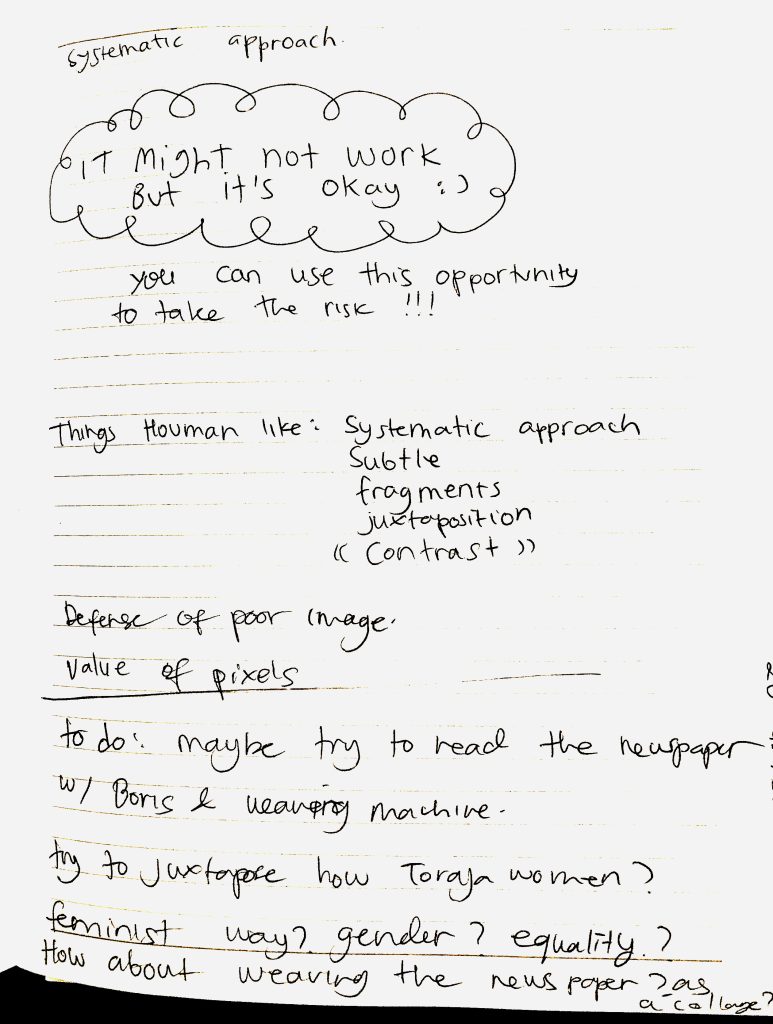 systematic approach.
IT Might not work
But it's okay :)
you can use this opportunity
to take the risk !!!
Things Houman like: Systematic approach
Subtle
fragments
juxtaposition
(( Contrast ))
Defense of poor image.
Value of pixels
to do: maybe try to read the newspaper
w/ Boris & weaving machine.
try to Juxtapose how Toraja women?
feminist way? gender? equality?
How about weaving the newspaper? as
a collage?